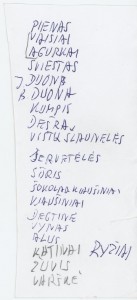 PIENAS
VAISIAI
AGURKAI
SVIESTAS
DUONA
DUONA
KUMPIS
DEŠRA
VIŠTŲ ŠLAUNELĖS
SERVETĖLĖS
SŪRIS
ŠOKOLAD KIAUŠINIAI
KIAUŠINIAI
DEGTINĖ
VYNAS
ALUS
KATINAI
RYŽIAI
ŽUVIS
VARŠKĖ